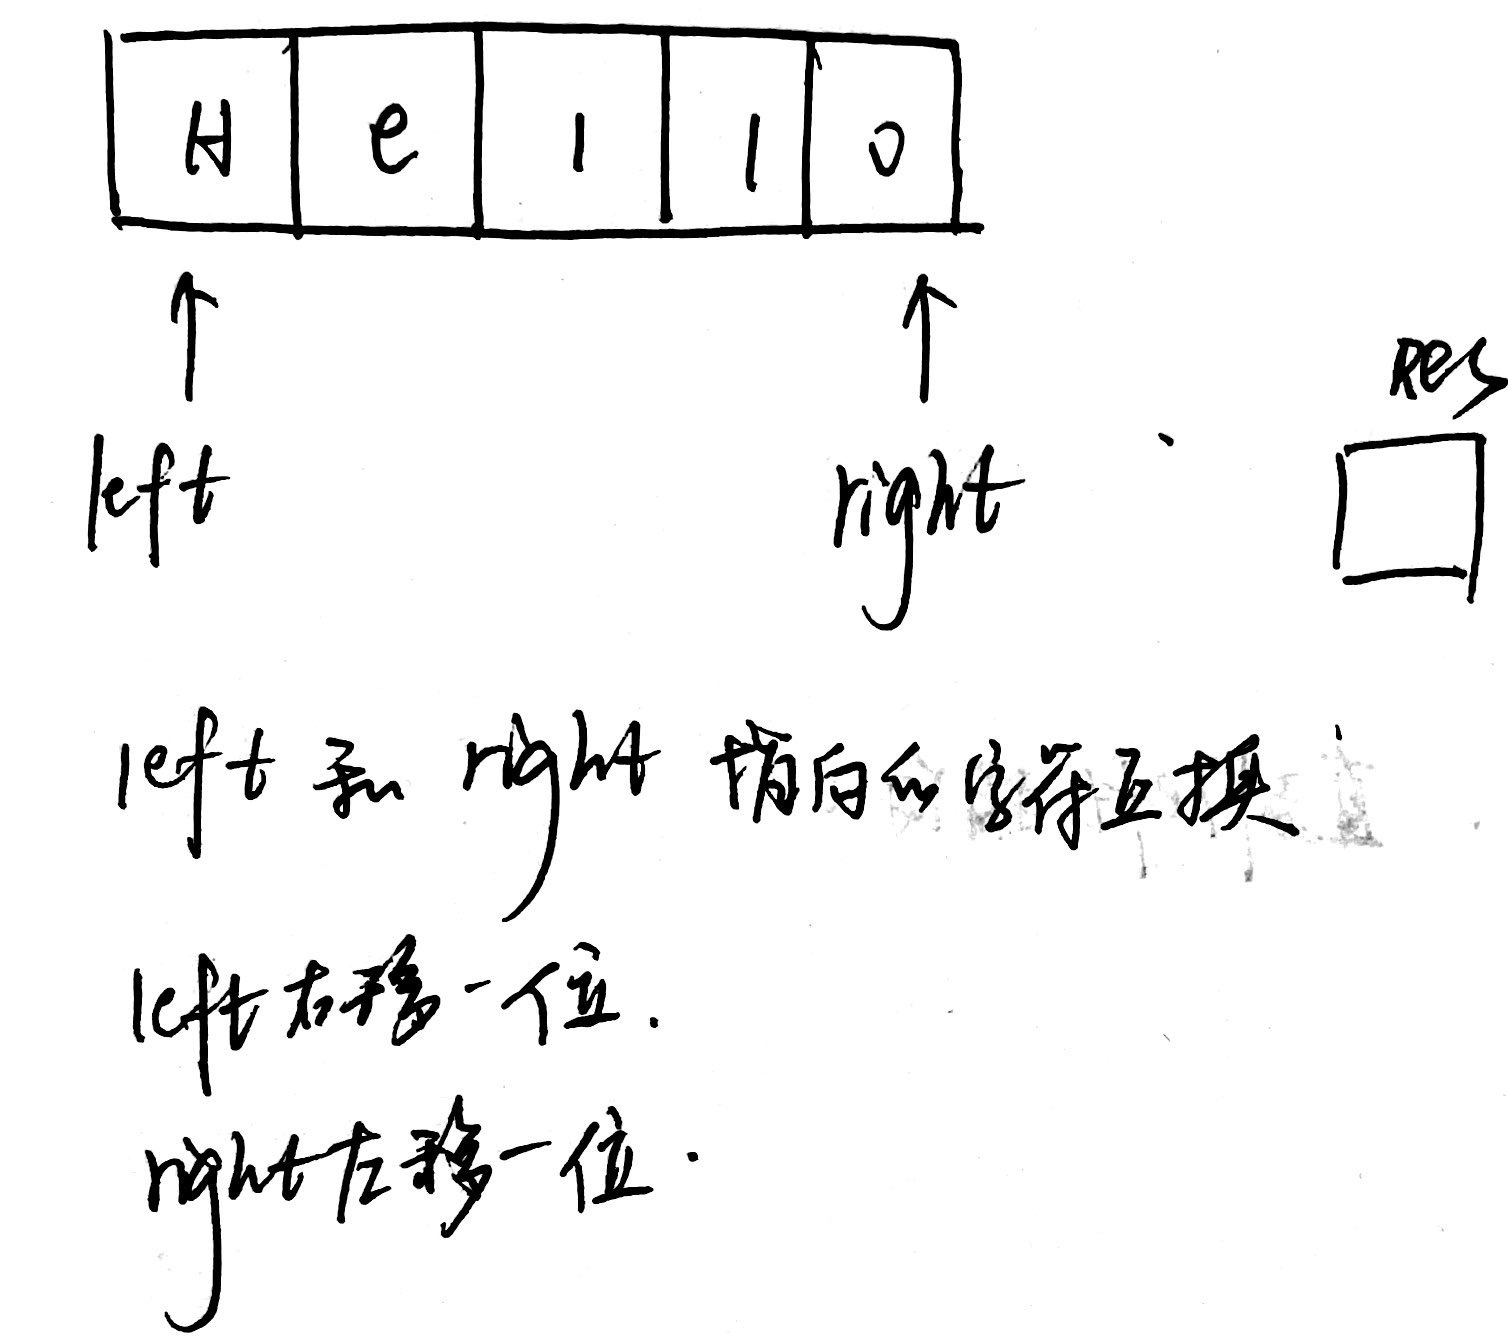 H e l l o
Res
left right
left 和 right 指向的字符互换
left右移一位.
right左移一位.